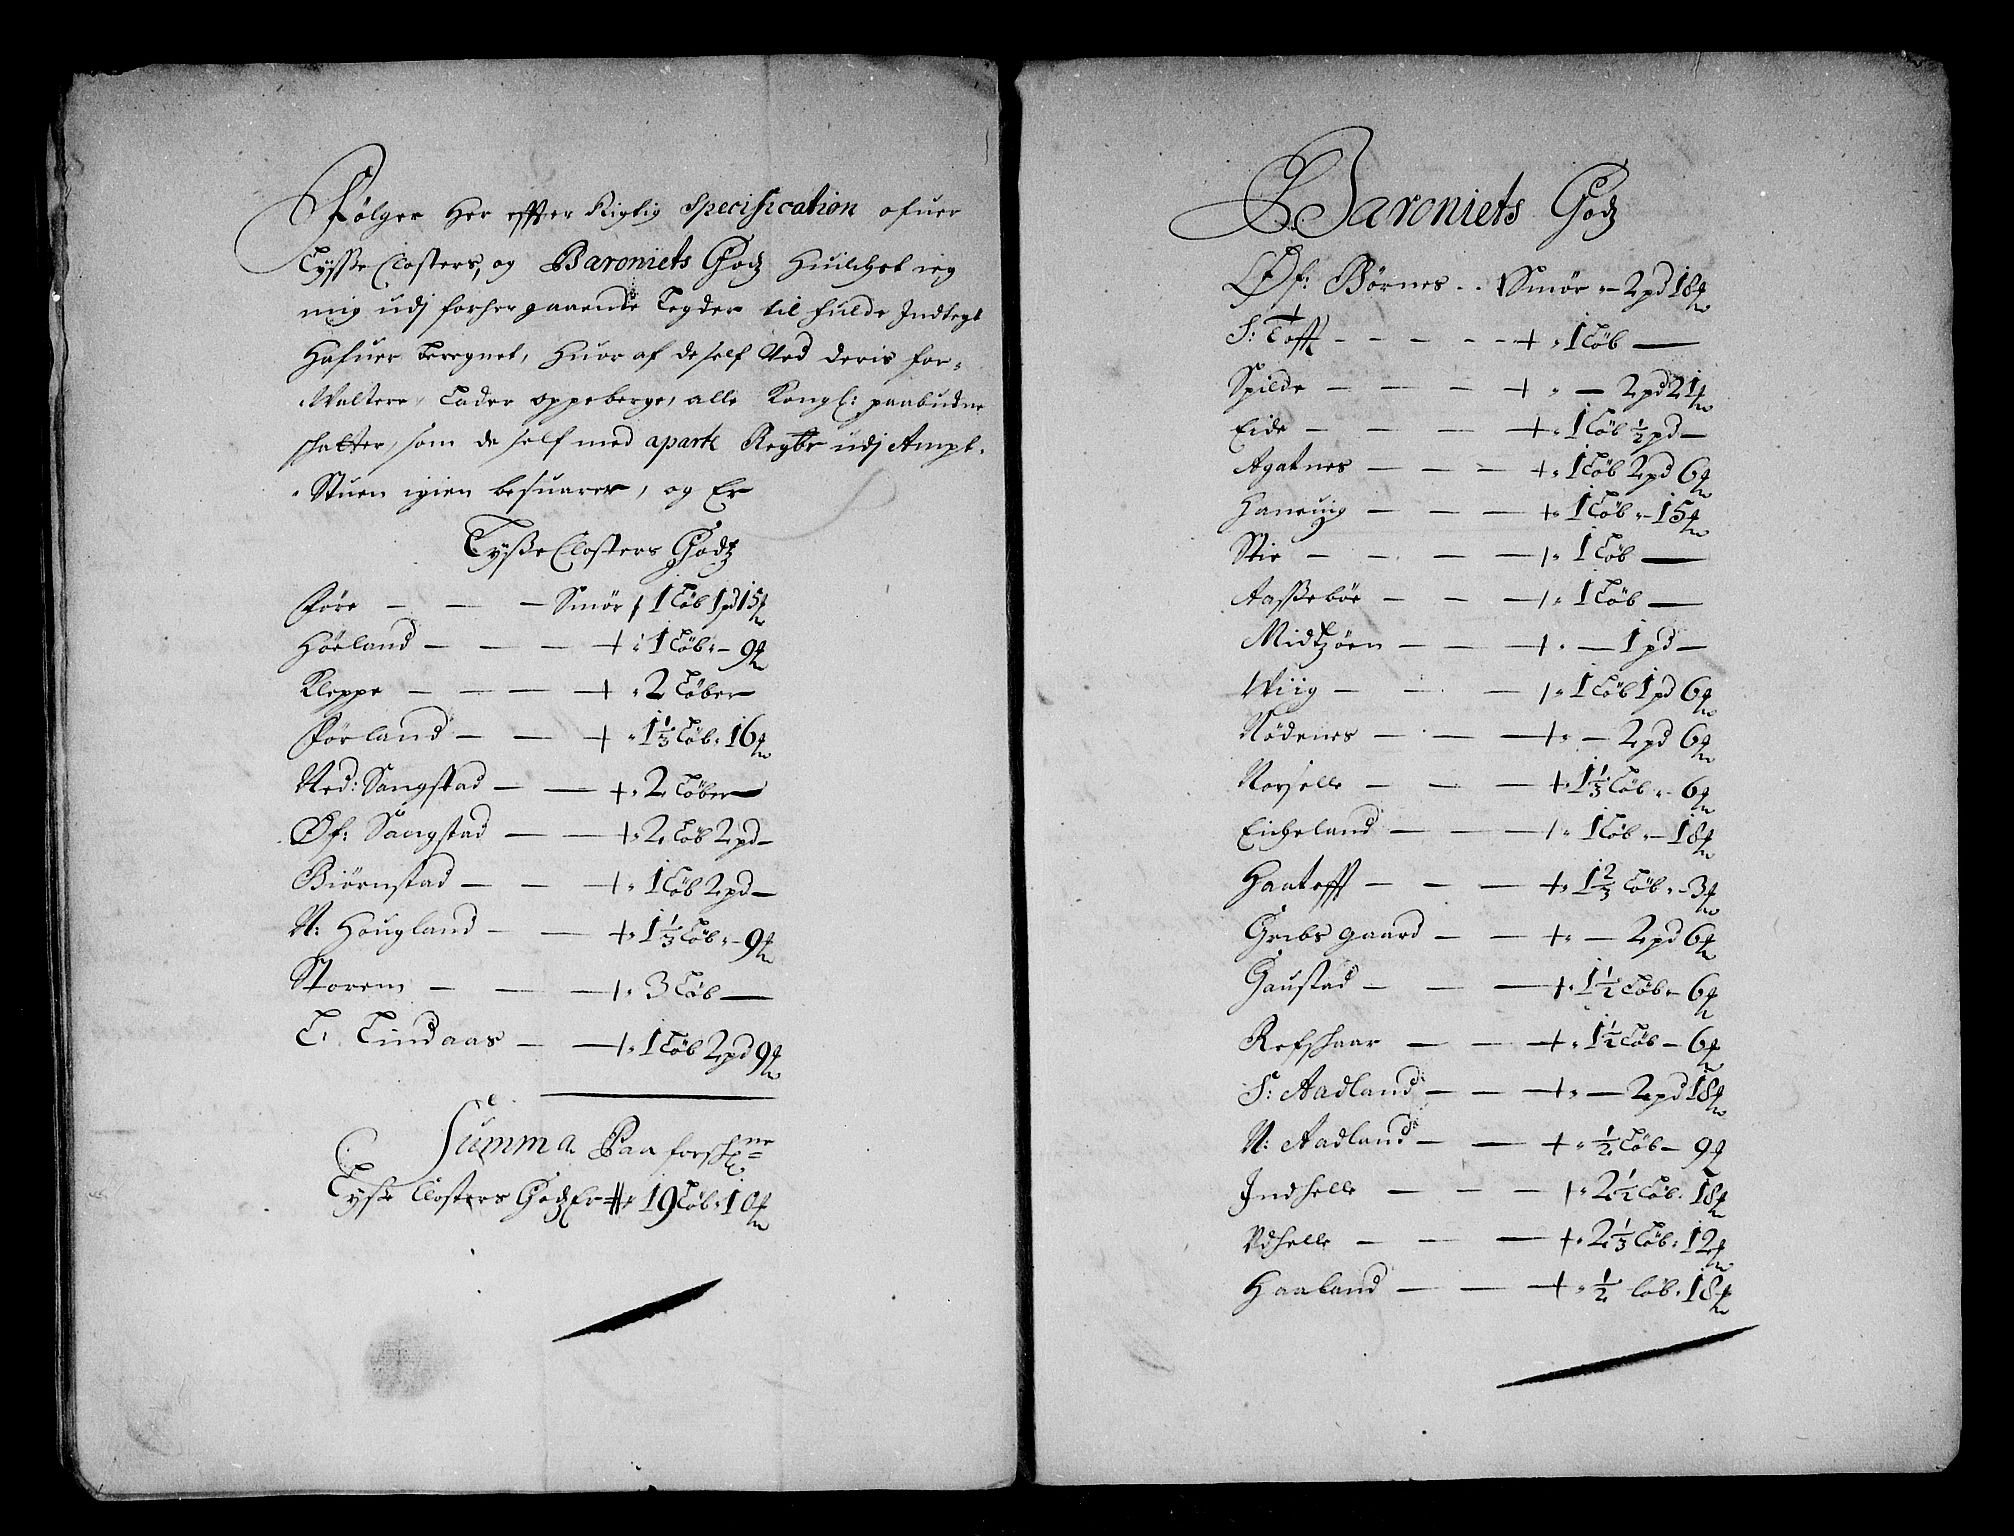 Følger her effter Rigtig Specification ofuer
Lysße Closters, og Baroniets Godz huilchet ieg
mig udj forhergaaende Legder til fulde Indtegt
hafuer beregnet, huor af de self ved deris for-
Waltere, Lader oppeberge, alle Kongl: paabudne
skatter, som de self med aparte Regbr udj Ampt-
Stuen igien besuarer, og Er
Lysße Closters Godtz
Føre — — — Smør 1 Løb 1 pd 15 ℔
Høeland — — — 1 Løb - 9 ℔
Kleppe — — — 2 Løber
Førland — — 1⅓ Løb 16 ℔
Ned: Sangstad — — 2 Løber
Øf: Sangstad — — 2 Løb 2 pd
Biørnstad — — 1 Løb 2 pd
N: Hougland — — 1⅓ Løb - 9 ℔
Storem — — 3 Løb
L. Lindaas — — 1 Løb 2 pd 9 ℔
Summa Paa forschne
Lysße Closters Godz Er 19 Løb 10 ℔
Baroniets Godz
Øf: Børnes .. Smør - 2 pd 18 ℔
S: Tofft — — — 1 Løb —
Spilde — — — 2 pd 21 ℔
Eide — — — 1 Løb ½ pd
Agatnes — — — 1 Løb 2 pd 6 ℔
Haneuig — — — 1 Løb - 15 ℔
Stie — — — 1 Løb —
Aaßebøe — — — 1 Løb —
Midtzøen — — — 1 pd
Wiig — — — 1 Løb 1 pd 6 ℔
Nødenes — — — 2 pd 6 ℔
Røyselle — — — 1⅓ Løb - 6 ℔
Eicheland — — — 1 Løb - 18 ℔
Haatofft — — — 1⅔ Løb - 3 ℔
Gribs gaard — — 2 pd 6 ℔
Gaustad — — — 1½ Løb - 6 ℔
Refschaar — — — 1½ Løb - 6 ℔
S: Aadland — — 2 pd 18 ℔
N: Aadland — — ½ Løb - 9 ℔
Indselle — — — 2½ Løb 18 ℔
Udselle — — — 2⅓ Løb 12 ℔
Haaland — — — ½ løb 18 ℔